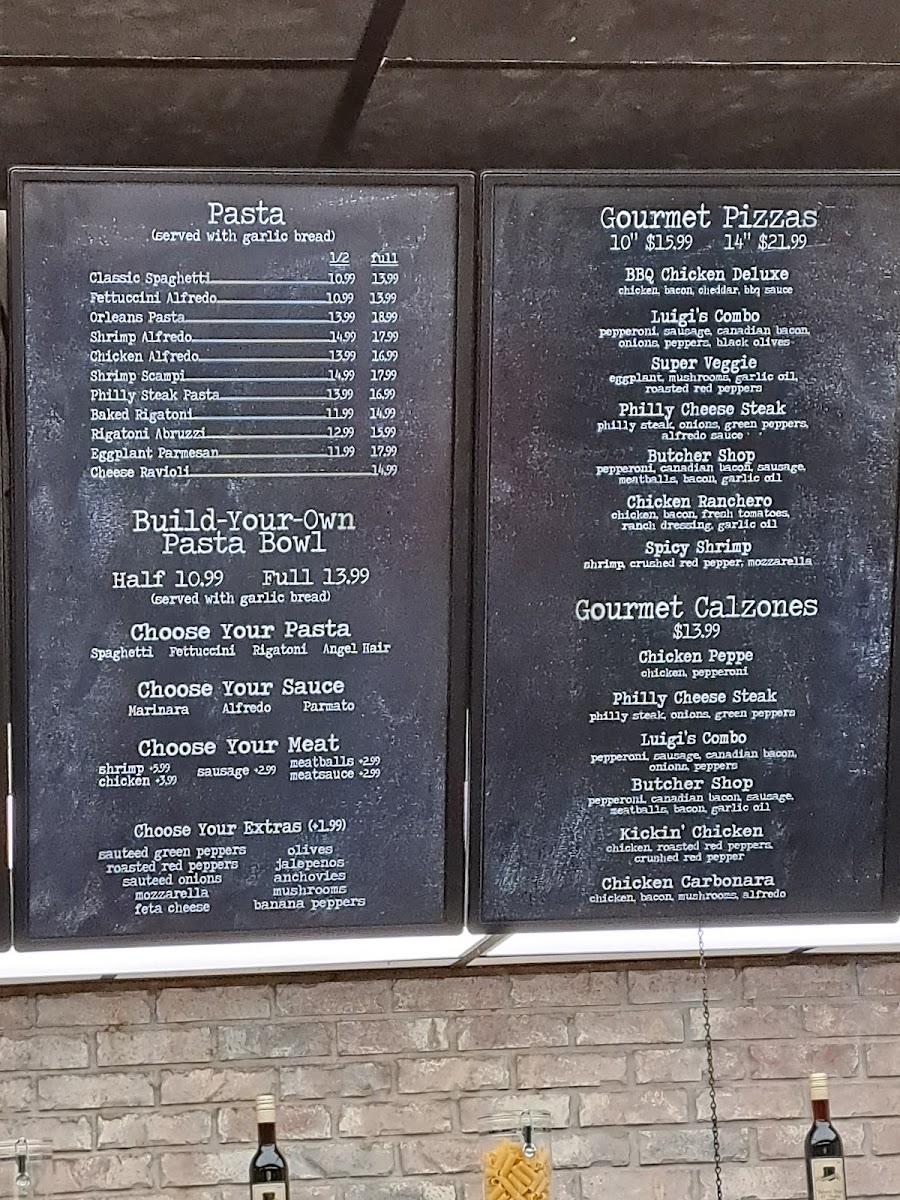 Pasta
(served with garlic bread)
1/2 full
Classic Spaghetti 10.99 13.99
Fettuccini Alfredo 10.99 13.99
Orleans Pasta 13.99 18.99
Shrimp Alfredo 14.99 17.99
Chicken Alfredo 13.99 16.99
Shrimp Scampi 14.99 17.99
Philly Steak Pasta 13.99 16.99
Baked Rigatoni 11.99 14.99
Rigatoni Abruzzi 12.99 15.99
Eggplant Parmesan 11.99 17.99
Cheese Ravioli 14.99
Build-Your-Own
Pasta Bowl
Half 10.99 Full 13.99
(served with garlic bread)
Choose Your Pasta
Spaghetti Fettuccini Rigatoni Angel Hair
Choose Your Sauce
Marinara Alfredo Parmato
Choose Your Meat
shrimp +5.99 sausage +2.99 meatballs +2.99
chicken +3.99 meatsauce +2.99
Choose Your Extras (+1.99)
sauteed green peppers olives
roasted red peppers jalepenos
sauteed onions anchovies
mozzarella mushrooms
feta cheese banana peppers
Gourmet Pizzas
10" $15.99 14" $21.99
BBQ Chicken Deluxe
chicken, bacon, cheddar, bbq sauce
Luigi's Combo
pepperoni, sausage, canadian bacon,
onions, peppers, black olives
Super Veggie
eggplant, mushrooms, garlic oil,
roasted red peppers
Philly Cheese Steak
philly steak, onions, green peppers,
alfredo sauce
Butcher Shop
pepperoni, canadian bacon, sausage,
meatballs, bacon, garlic oil
Chicken Ranchero
chicken, bacon, fresh tomatoes,
ranch dressing, garlic oil
Spicy Shrimp
shrimp, crushed red pepper, mozzarella
Gourmet Calzones
$13.99
Chicken Peppe
chicken, pepperoni
Philly Cheese Steak
philly steak, onions, green peppers
Luigi's Combo
pepperoni, sausage, canadian bacon,
onions, peppers
Butcher Shop
pepperoni, canadian bacon, sausage,
meatballs, bacon, garlic oil
Kickin' Chicken
chicken, roasted red peppers,
crushed red pepper
Chicken Carbonara
chicken, bacon, mushrooms, alfredo